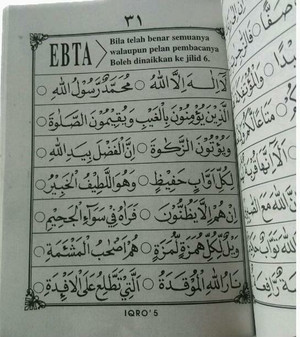 ٣١
EBTA
Bila telah benar semuanya
walaupun pelan pembacanya
Boleh dinaikkan ke jilid 6.
لَآ اِلٰهَ اِلَّا اللهُ ○ مُحَمَّدٌ رَسُوْلُ اللهِ
الَّذِيْنَ يُؤْمِنُوْنَ بِالْغَيْبِ وَيُقِيْمُوْنَ الصَّلٰوةَ
وَيُؤْتُوْنَ الزَّكٰوةَ ○ اِنَّ الْفَضْلَ بِيَدِ اللهِ
لِكُلِّ اَوَّابٍ حَفِيْظٍ ○ وَهُوَ اللَّطِيْفُ الْخَبِيْرُ
اِنْ هُمْ اِلَّا يَظُنُّوْنَ ○ فَرَاٰهُ فِيْ سَوَآءِ الْجَحِيْمِ
وَيْلٌ لِّكُلِّ هُمَزَةٍ لُّمَزَةٍ ○ هُمْ اَصْحٰبُ الْمَشْئَمَةِ
نَارُ اللهِ الْمُوْقَدَةُ ○ الَّتِيْ تَطَّلِعُ عَلَى الْاَفْئِدَةِ
IQRO' 5